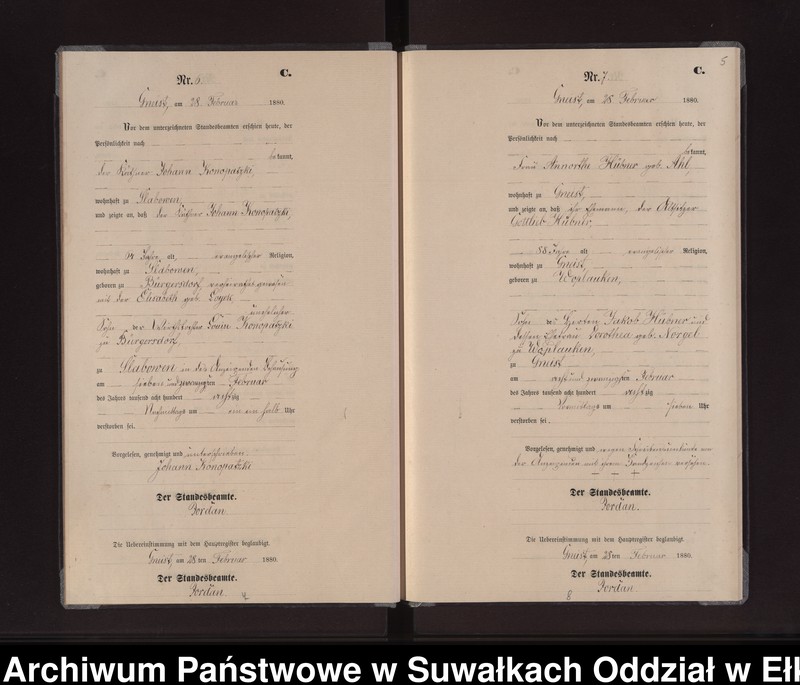 Nr. 6
C.
Gneist, am 28 Februar 1880.
Vor dem unterzeichneten Standesbeamten erschien heute, der
Persönlichkeit nach
bekannt,
der Käthner Johann Konopatzki,
wohnhaft zu Slabowen,
und zeigte an, daß der Käthner Johann Konopatzki,
Jahre alt, evangelischer Religion,
wohnhaft zu Slabowen,
geboren zu Bürgersdorf, verheirathet gewesen
mit der Elisabeth geb.
unehelicher
Sohn der Konopatzki
zu Bürgersdorf
zu Slabowen in des Anzeigenden Behausung
am sieben und zwanzigsten Februar
des Jahres tausend acht hundert achtzig
Nachmittags um ein ein halb Uhr
verstorben sei.
Vorgelesen, genehmigt und unterschrieben
Johann Konopatzki
Der Standesbeamte.
Jordan.
Die Uebereinstimmung mit dem Hauptregister beglaubigt.
Gneist, am 28 ten Februar 1880.
Der Standesbeamte.
Jordan
5
Nr. 7
C.
Gneist, am 28 Februar 1880.
Vor dem unterzeichneten Standesbeamten erschien heute, der
Persönlichkeit nach
bekannt,
Frau Annorthe Hübner geb. Ahl,
wohnhaft zu Gneist,
und zeigte an, daß ihr Ehemann, der Altsitzer
Gottlieb Hübner,
58 Jahre alt, evangelischer Religion,
wohnhaft zu Gneist,
geboren zu Woplauken,
Sohn des Jakob Hübner und
dessen Ehefrau Dorothea geb. Norgel
zu Woplauken,
zu Gneist
am acht und zwanzigsten Februar
des Jahres tausend acht hundert achtzig
Vormittags um sieben Uhr
verstorben sei.
Vorgelesen, genehmigt und wegen Schreibensunkunde von
der Anzeigenden mit ihrem Handzeichen versehen
+ + +
Der Standesbeamte.
Jordan.
Die Uebereinstimmung mit dem Hauptregister beglaubigt.
Gneist, am 28 ten Februar 1880.
Der Standesbeamte.
Jordan
8
Archiwum Państwowe w Suwałkach Oddział w Ełk